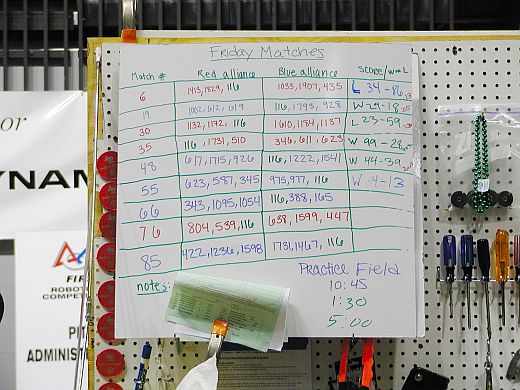 Friday Matches
Match # Red alliance Blue alliance score/w or L
6 1413, 1829, 116 1033, 1907, 435 L 34-86
19 1082, 612, 619 116, 1793, 928 W 29-18
30 1132, 1172, 116 1610, 1184, 1137 L 23-59
35 116, 1731, 510 346, 611, 623 W 99-28
48 617, 1715, 926 116, 1222, 1541 W 44-39
55 623, 587, 345 975, 977, 116
66 343, 1095, 1054 116, 388, 165
76 804, 539, 116 638, 1599, 447
85 422, 1236, 1598 1731, 1467, 116
notes:
Practice Field
10:45
1:30
5:00
or
YNAM
FIR
ROBO
COMPE
PI
ADMINIS